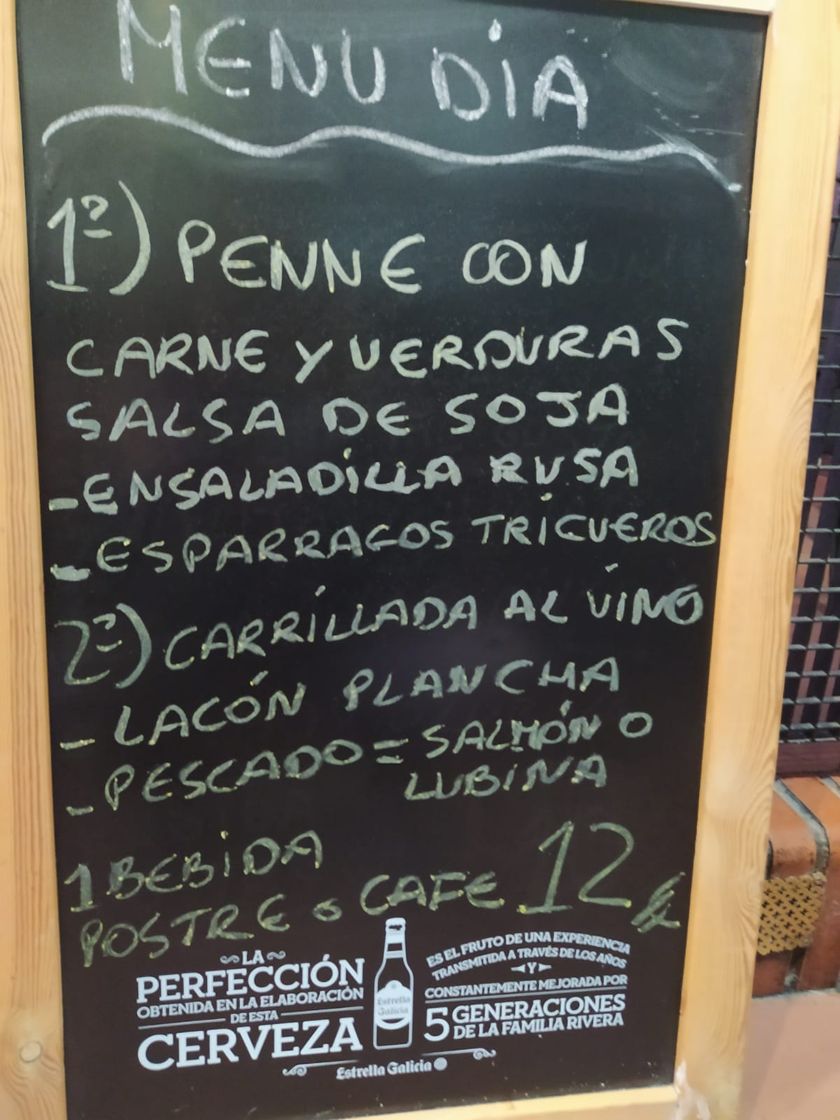 MENU DIA
1º) PENNE CON
CARNE Y VERDURAS
SALSA DE SOJA
-ENSALADILLA RUSA
-ESPARRAGOS TRIGUEROS
2º) CARRILLADA AL VINO
- LACÓN PLANCHA
- PESCADO = SALMÓN O
LUBINA
1 BEBIDA
POSTRE o CAFE 12 €
LA
PERFECCIÓN
OBTENIDA EN LA ELABORACIÓN
DE ESTA
CERVEZA
Estrella
Galicia
ES EL FRUTO DE UNA EXPERIENCIA
TRANSMITIDA A TRAVÉS DE LOS AÑOS
Y
CONSTANTEMENTE MEJORADA POR
5 GENERACIONES
DE LA FAMILIA RIVERA
Estrella Galicia